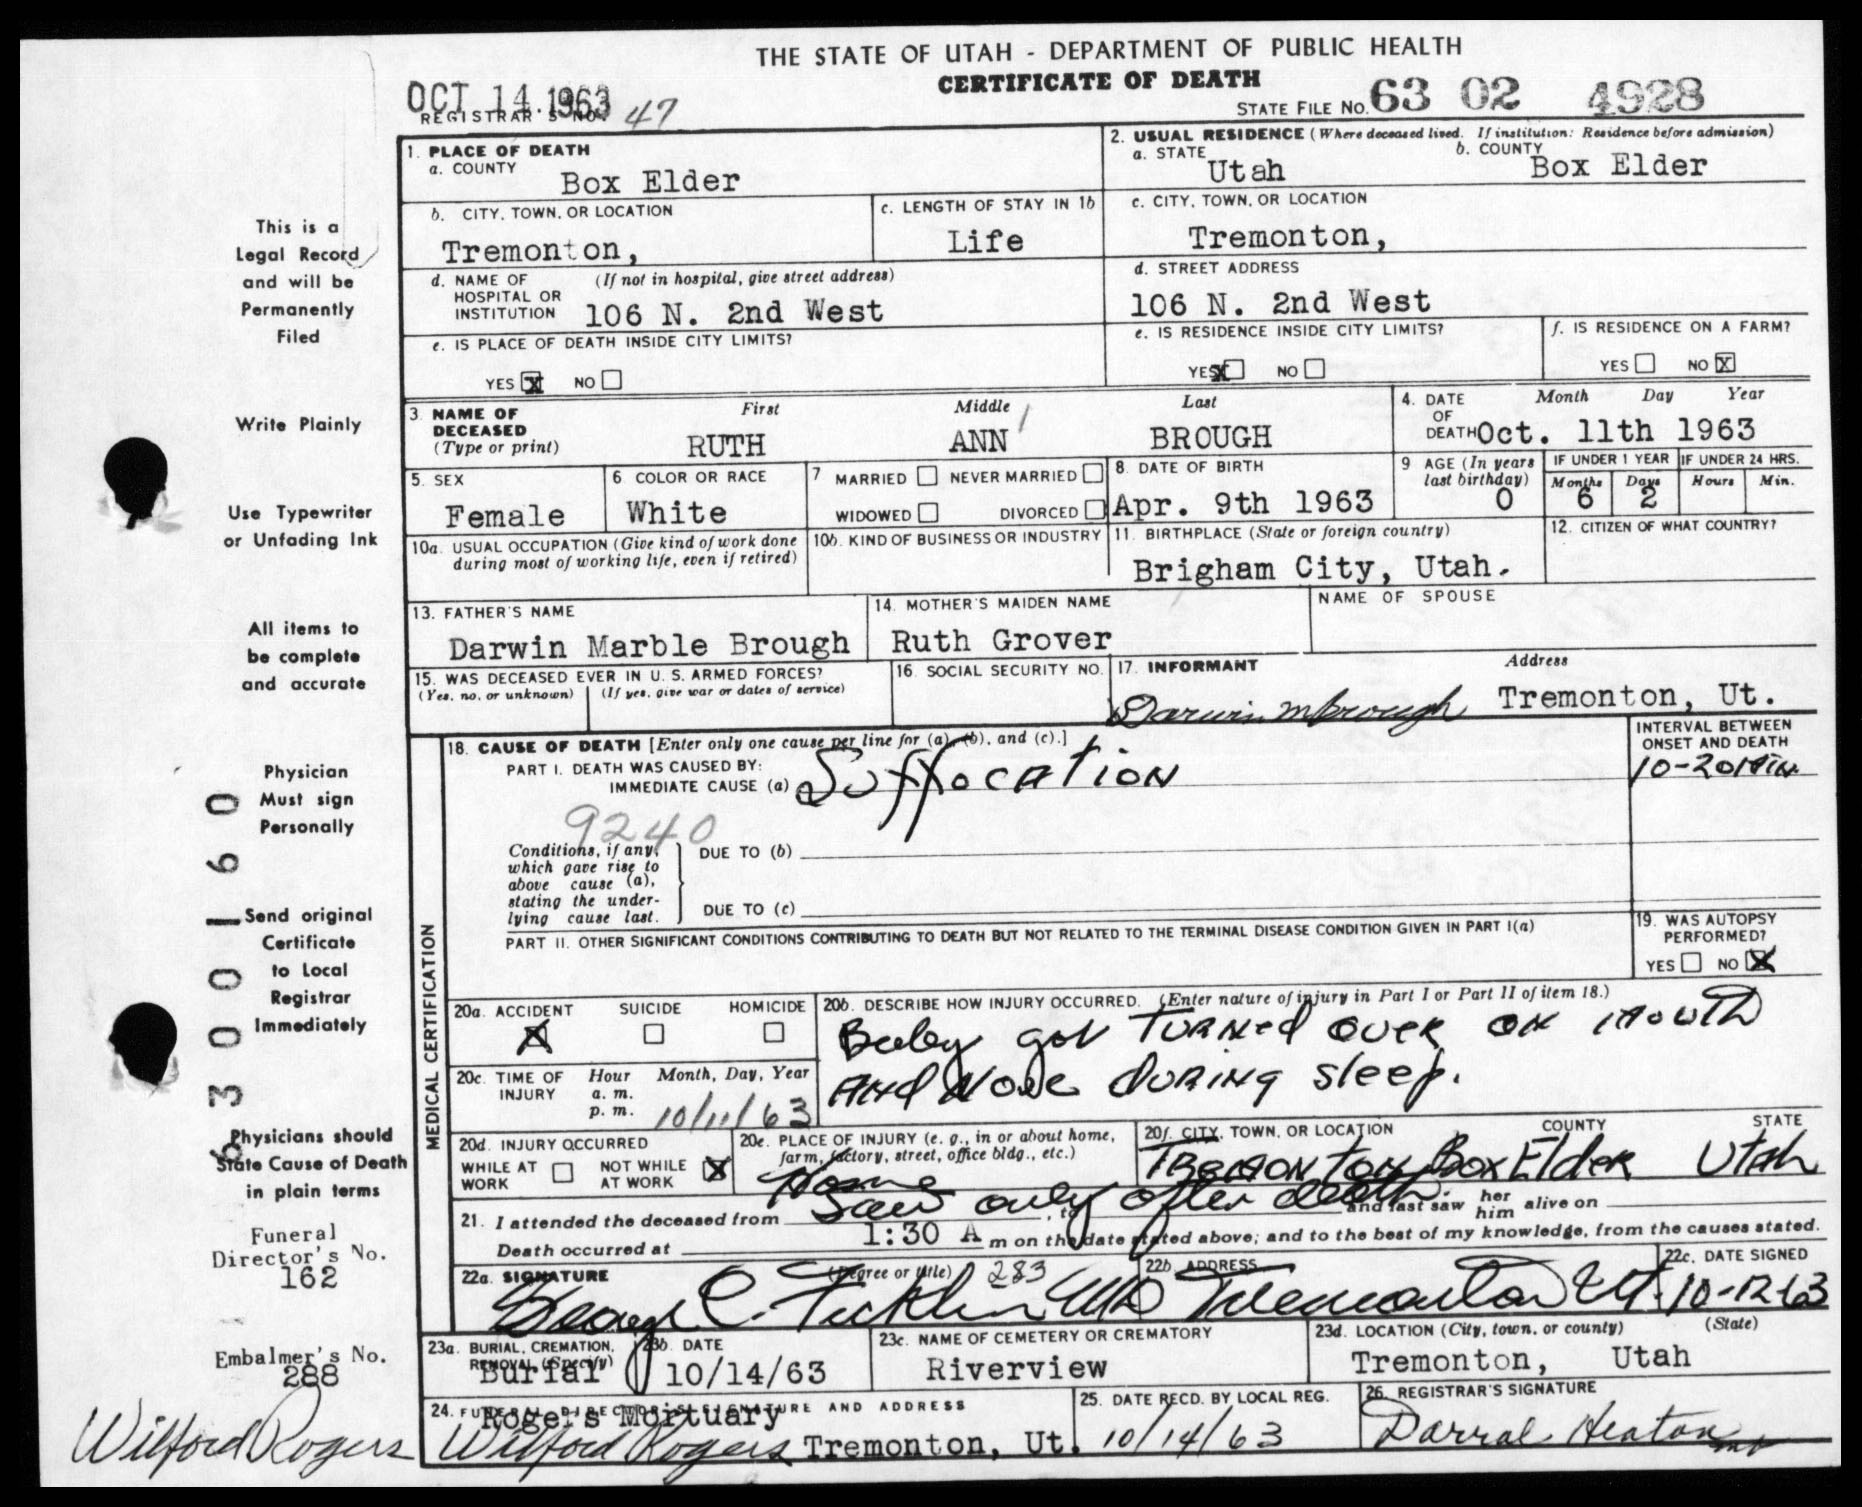 THE STATE OF UTAH - DEPARTMENT OF PUBLIC HEALTH
CERTIFICATE OF DEATH
OCT 14.1963
REGISTRAR'S NO. 47
STATE FILE NO. 63 02 4928
1. PLACE OF DEATH
a. COUNTY
Box Elder
2. USUAL RESIDENCE (Where deceased lived. If institution: Residence before admission)
a. STATE
Utah
b. COUNTY
Box Elder
b. CITY, TOWN, OR LOCATION
Tremonton,
c. LENGTH OF STAY IN 1b
Life
c. CITY, TOWN, OR LOCATION
Tremonton,
d. NAME OF HOSPITAL OR INSTITUTION
(If not in hospital, give street address)
106 N. 2nd West
d. STREET ADDRESS
106 N. 2nd West
e. IS PLACE OF DEATH INSIDE CITY LIMITS?
YES X NO
e. IS RESIDENCE INSIDE CITY LIMITS?
YES X NO
f. IS RESIDENCE ON A FARM?
YES NO X
3. NAME OF DECEASED
(Type or print)
First Middle Last
RUTH ANN BROUGH
4. DATE OF DEATH
Month Day Year
Oct. 11th 1963
5. SEX
Female
6. COLOR OR RACE
White
7 MARRIED NEVER MARRIED
WIDOWED DIVORCED
8. DATE OF BIRTH
Apr. 9th 1963
9 AGE (In years last birthday)
0
IF UNDER 1 YEAR
Months Days
6 2
IF UNDER 24 HRS.
Hours Min.
10a. USUAL OCCUPATION (Give kind of work done during most of working life, even if retired)
10b. KIND OF BUSINESS OR INDUSTRY
11. BIRTHPLACE (State or foreign country)
Brigham City, Utah.
12. CITIZEN OF WHAT COUNTRY?
13. FATHER'S NAME
Darwin Marble Brough
14. MOTHER'S MAIDEN NAME
Ruth Grover
NAME OF SPOUSE
15. WAS DECEASED EVER IN U. S. ARMED FORCES?
(Yes, no, or unknown) (If yes, give war or dates of service)
16. SOCIAL SECURITY NO.
17. INFORMANT
Darwin M Brough
Address
Tremonton, Ut.
MEDICAL CERTIFICATION
18. CAUSE OF DEATH [Enter only one cause per line for (a), (b), and (c).]
PART I. DEATH WAS CAUSED BY:
IMMEDIATE CAUSE (a) Suffocation
INTERVAL BETWEEN ONSET AND DEATH
10-20 Min.
9240
Conditions, if any, which gave rise to above cause (a), stating the underlying cause last.
DUE TO (b)
DUE TO (c)
PART II. OTHER SIGNIFICANT CONDITIONS CONTRIBUTING TO DEATH BUT NOT RELATED TO THE TERMINAL DISEASE CONDITION GIVEN IN PART I(a)
19. WAS AUTOPSY PERFORMED?
YES NO X
20a. ACCIDENT SUICIDE HOMICIDE
X
20b. DESCRIBE HOW INJURY OCCURRED. (Enter nature of injury in Part I or Part II of item 18.)
Baby got turned over on mouth
and nose during sleep.
20c. TIME OF INJURY
Hour Month, Day, Year
a. m.
p. m. 10/11/63
20d. INJURY OCCURRED
WHILE AT WORK NOT WHILE AT WORK X
20e. PLACE OF INJURY (e. g., in or about home, farm, factory, street, office bldg., etc.)
Home
20f. CITY, TOWN, OR LOCATION COUNTY STATE
Tremonton Box Elder Utah
Saw only after death.
21. I attended the deceased from , to and last saw her him alive on
Death occurred at 1:30 A m on the date stated above; and to the best of my knowledge, from the causes stated.
22a. SIGNATURE (Degree or title) 283
George C. Ficklin MD
22b. ADDRESS
Tremonton Ut.
22c. DATE SIGNED
10-12-63
23a. BURIAL, CREMATION, REMOVAL (Specify)
Burial
23b. DATE
10/14/63
23c. NAME OF CEMETERY OR CREMATORY
Riverview
23d. LOCATION (City, town, or county) (State)
Tremonton, Utah
24. FUNERAL DIRECTOR'S SIGNATURE AND ADDRESS
Rogers Mortuary
Wilford Rogers Tremonton, Ut.
25. DATE RECD. BY LOCAL REG.
10/14/63
26. REGISTRAR'S SIGNATURE
Darral Heaton
This is a
Legal Record
and will be
Permanently
Filed
Write Plainly
Use Typewriter
or Unfading Ink
All items to
be complete
and accurate
Physician
Must sign
Personally
Send original
Certificate
to Local
Registrar
Immediately
Physicians should
State Cause of Death
in plain terms
Funeral
Director's No.
162
Embalmer's No.
288
Wilford Rogers